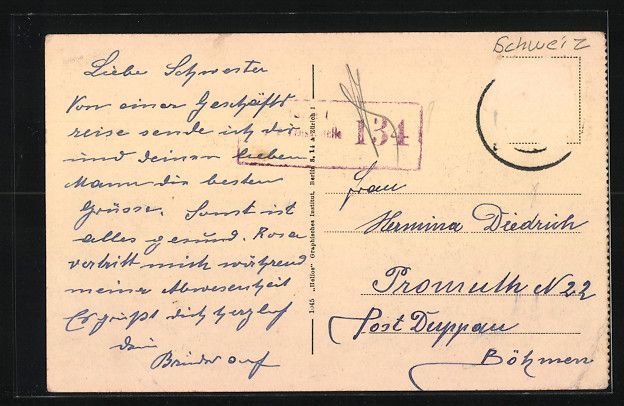 Schweiz
Liebe Schwester
Von einer Geschäfts
reise sende ich dir
und deinem lieben
Mann die besten
Grüsse. Sonst ist
alles gesund. Rosa
vertritt mich während
meiner Abwesenheit
Es grüßt dich herzlich
dein
Bruder
134
1345 "Helios" Graphisches Institut, Berlin S. 14 u. Zürich 1
Frau
Hermina Diedrich
Promuth N 22
Post Duppau
Böhmen